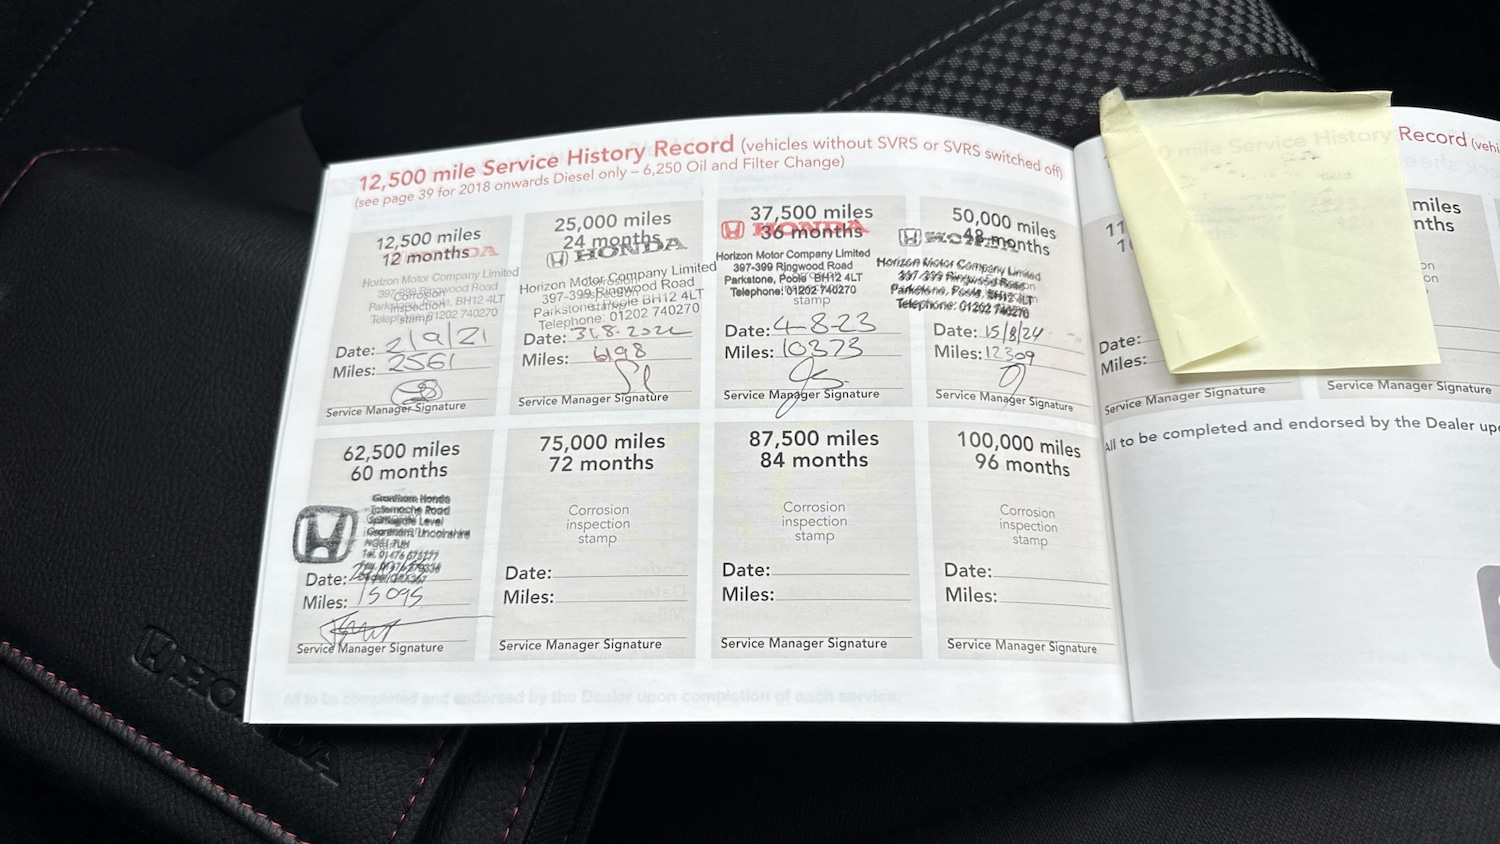 12,500 mile Service History Record (vehicles without SVRS or SVRS switched off)
(see page 39 for 2018 onwards Diesel only – 6,250 Oil and Filter Change)
12,500 miles
12 months
Horizon Motor Company Limited
397-399 Ringwood Road
Parkstone, Poole, BH12 4LT
Telephone: 01202 740270
Corrosion
inspection
stamp
Date: 2/9/21
Miles: 2561
Service Manager Signature
25,000 miles
24 months
HONDA
Horizon Motor Company Limited
397-399 Ringwood Road
Parkstone, Poole BH12 4LT
Telephone: 01202 740270
Date: 31.8.2022
Miles: 6198
Service Manager Signature
37,500 miles
36 months
HONDA
Horizon Motor Company Limited
397-399 Ringwood Road
Parkstone, Poole BH12 4LT
Telephone: 01202 740270
stamp
Date: 4-8-23
Miles: 10373
Service Manager Signature
50,000 miles
48 months
HONDA
Horizon Motor Company Limited
397-399 Ringwood Road
Parkstone, Poole, BH12 4LT
Telephone: 01202 740270
Date: 15/8/24
Miles: 12309
Service Manager Signature
62,500 miles
60 months
Grantham Honda
Road
Spittlegate Level
Grantham, Lincolnshire
NG31 7UH
Date:
Miles: 15095
Service Manager Signature
75,000 miles
72 months
Corrosion
inspection
stamp
Date:
Miles:
Service Manager Signature
87,500 miles
84 months
Corrosion
inspection
stamp
Date:
Miles:
Service Manager Signature
100,000 miles
96 months
Corrosion
inspection
stamp
Date:
Miles:
Service Manager Signature
All to be completed and endorsed by the Dealer upon completion of each service.
mile Service History Record (vehi
11
1
Date:
Miles:
Service Manager Signature
miles
nths
on
on
Service Manager Signature
All to be completed and endorsed by the Dealer upo
HONDA